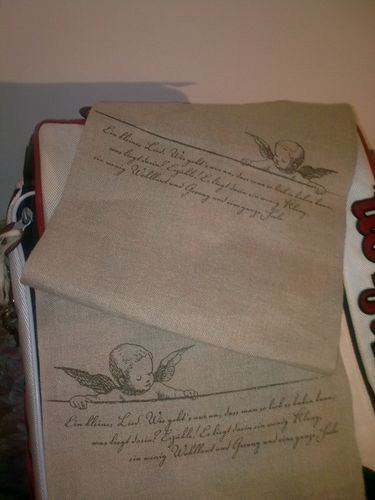 Ein kleines Lied. Wie geht's nur an, dass man so lieb es haben kann,
was liegt darin? Erzähle! Es liegt darin ein wenig Klang,
ein wenig Wohllaut und Gesang und eine ganze Seele
Ein kleines Lied. Wie geht's nur an, dass man so lieb es haben kann,
was liegt darin? Erzähle! Es liegt darin ein wenig Klang,
ein wenig Wohllaut und Gesang und eine ganze Seele